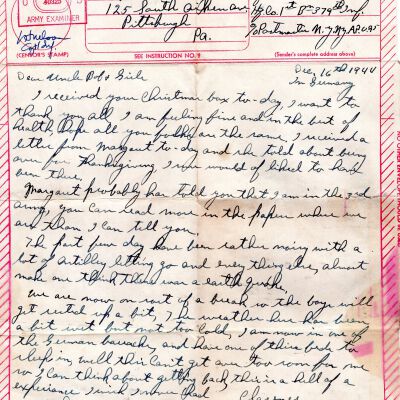 40323
ARMY EXAMINER
(CENSOR'S STAMP)
125 South Aiken ave
Pittsburgh
Pa.
SEE INSTRUCTION NO. 9
Co. 1st Bn 379th Inf
Postmaster N.Y. N.Y. APO 95
(Sender's complete address above)
Dec, 16th 1944
In Germany
Dear Uncle Bob & Girls
I received your Christmas box to-day, I want to
thank you all, I am feeling fine and in the best of
health hope all you folks are the same, I received a
letter from Margaret to-day and she told about being
over for Thanksgiving, I sure would of liked to have
been there,
Margaret probably has told you that I am in the 3rd
army, you can read more in the paper where we
are than I can tell you,
The past few days have been rather noisy with a
lot of artillery letting go and every thing else, almost
make one think there was a earth quake,
We are now on sort of a break so the boys will
get rested up a bit, The weather here has been
a bit wet but not too cold, I am now in one of
the German barracks and have one of their beds to
sleep in, well this Cant get any too soon for me
so I can think about getting back, this is a hell of a
experience I wish I never had